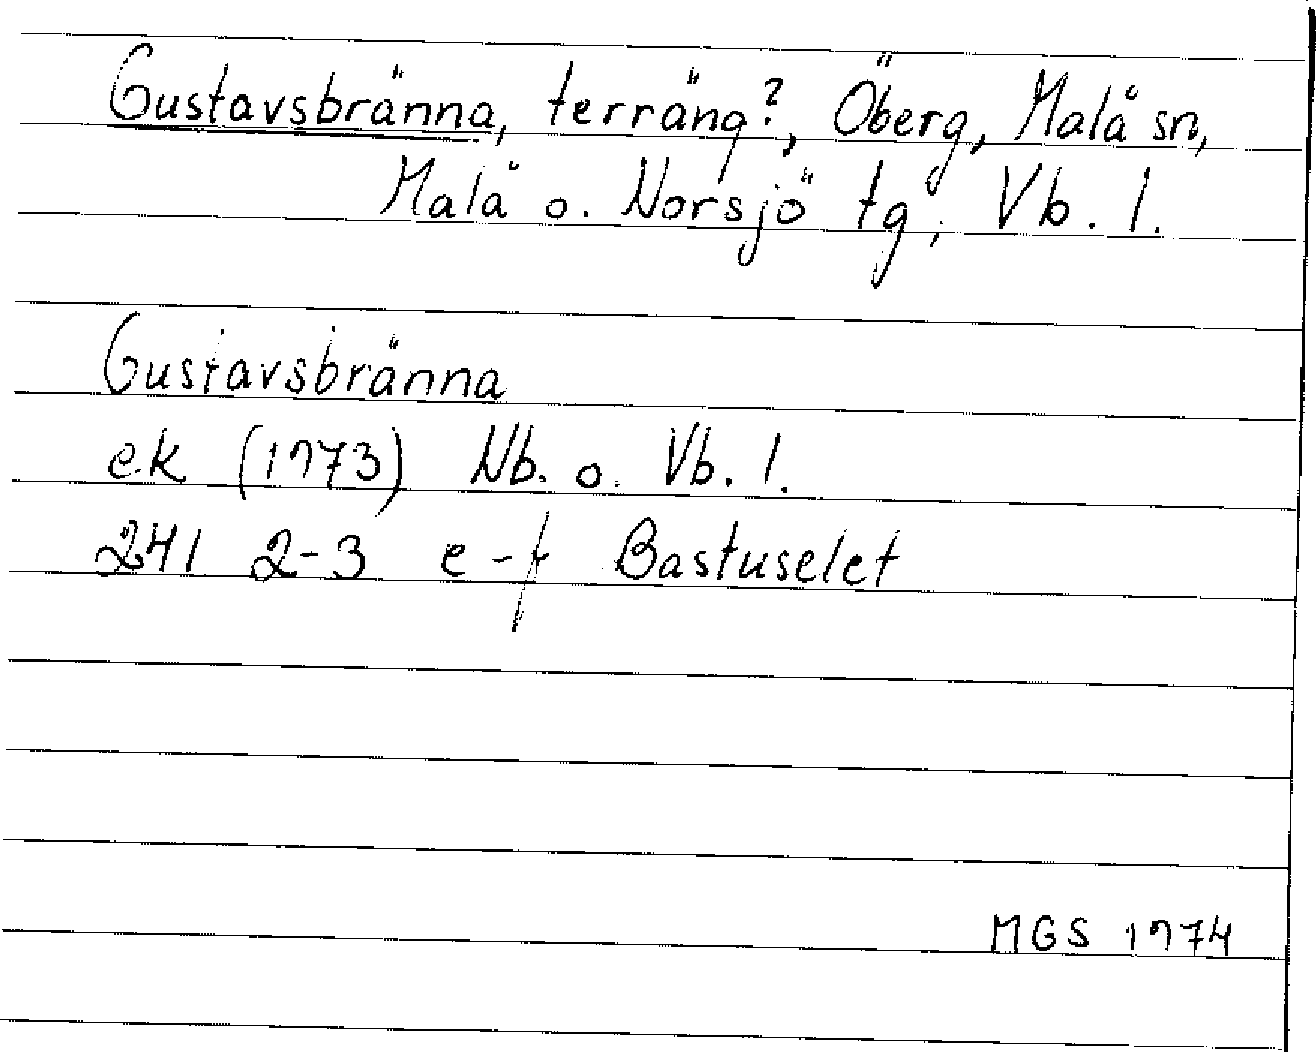 Gustavsbränna, terräng?, Öberg, Malå sn,
Malå o. Norsjö tg, Vb. l.
Gustavsbränna
ek (1973) Nb. o. Vb. l.
241 2-3 e-f Bastuselet
MGS 1974